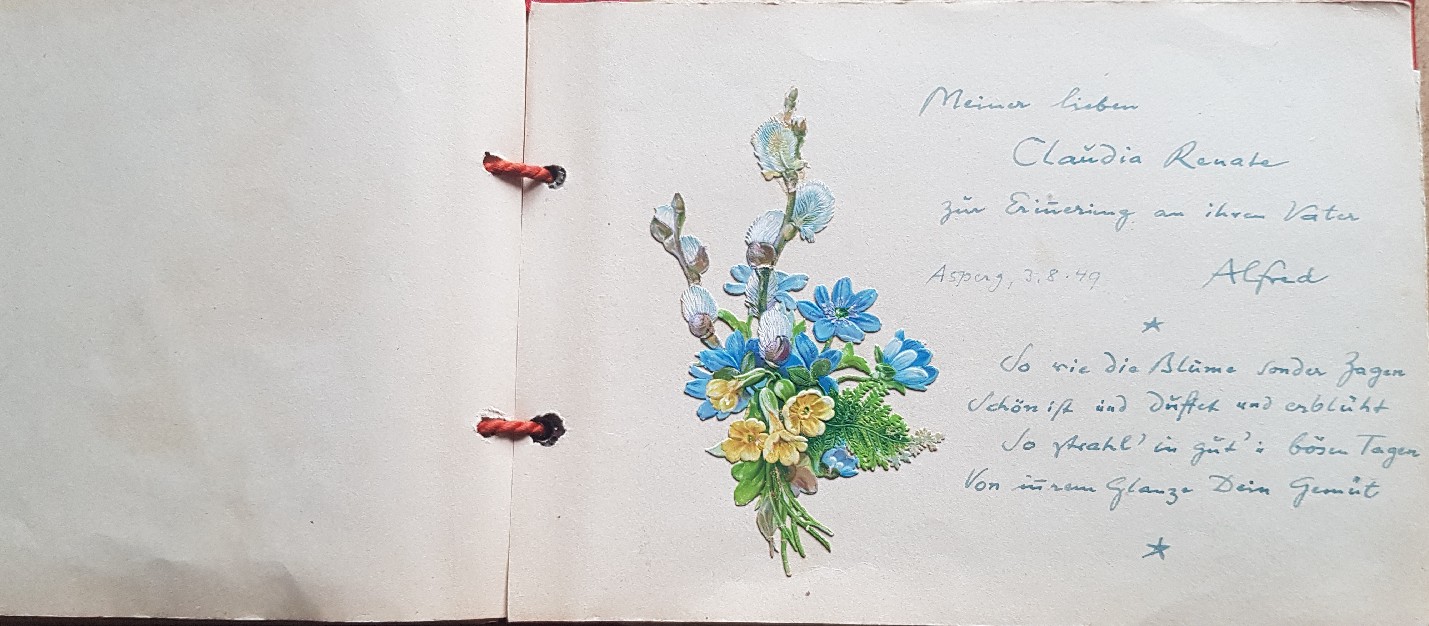 Meiner lieben
Claudia Renate
zur Erin̄erung an ihren Vater
Asperg, 3.8.49 Alfred
So wie die Blume sonder Zagen
Schön ist und duftet und erblüht
So strahl' in gut' u bösen Tagen
Von in̄rem Glanze Dein Gemüt